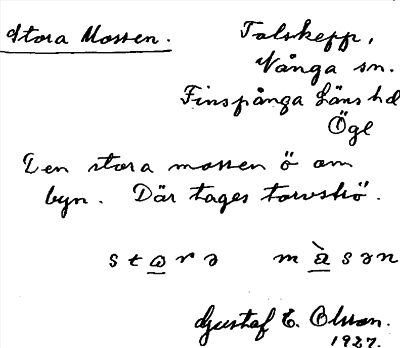 Stora Mossen.
Talskepp,
Vånga sn.
Finspånga Läns hd
Ögl
Den stora mossen ö om
byn. Där tages torvströ.
stωrə màsən
Gustaf E. Olsson.
1927.